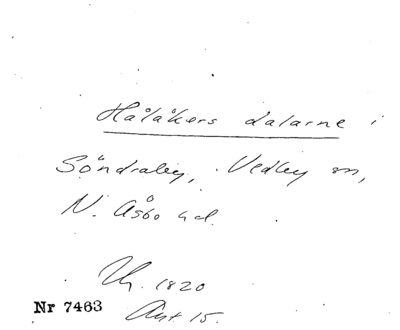 Hålåkers dalarne i
Söndraby, Vedby sn,
N. Åsbo hd.
Uh. 1820
Nr 7463
Ant. 15.